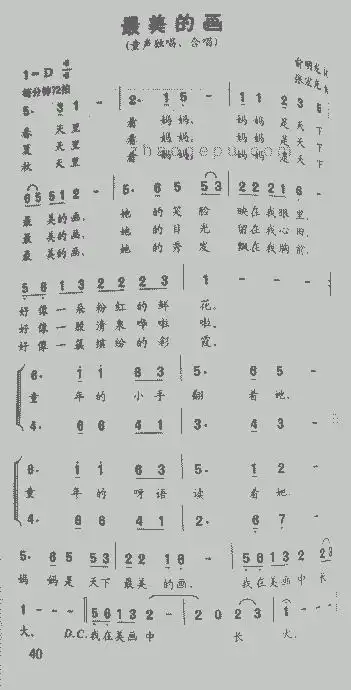 最美的画
(童声独唱、合唱)
1=D 4/4
每分钟72拍
5· 3 1 - | 2· 1 5 - | 1 1 2 3 5
春天里 看妈妈, 妈妈是天下
夏天里 看妈妈, 妈妈是天下
秋天里 看妈妈, 妈妈是天下
6 5 5 1 2 - | 5· 6 5 5 3 | 2 2 2 1 6
最美的画。 她的笑脸 映在我眼里,
最美的画。 她的目光 留在我心田,
最美的画。 她的秀发 飘在我胸前,
5 6 1 3 2 2 2 3 | 1 - -
好像一朵粉红的鲜花。
好像一股清泉哗啦啦。
好像一簇缤纷的彩霞。
6· 1 1 6 3 | 5· 6 5 -
童年的小手翻着她,
4· 6 6 4 1 | 3· 4 3 -
6· 1 1 6 3 | 5· 1 2 -
童年的呀语读着她。
4· 6 6 4 1 | 2· 6 7 -
5· 6 5 5 3 | 2 2 1 6 - | 5 6 1 3 2 2 3
妈妈是天下最美的画。 我在美画中长
1 - - - | 5 6 1 3 2 - | 2 0 2 3 | 1 - - -
大。 D.C.我在美画中 长 大。
40